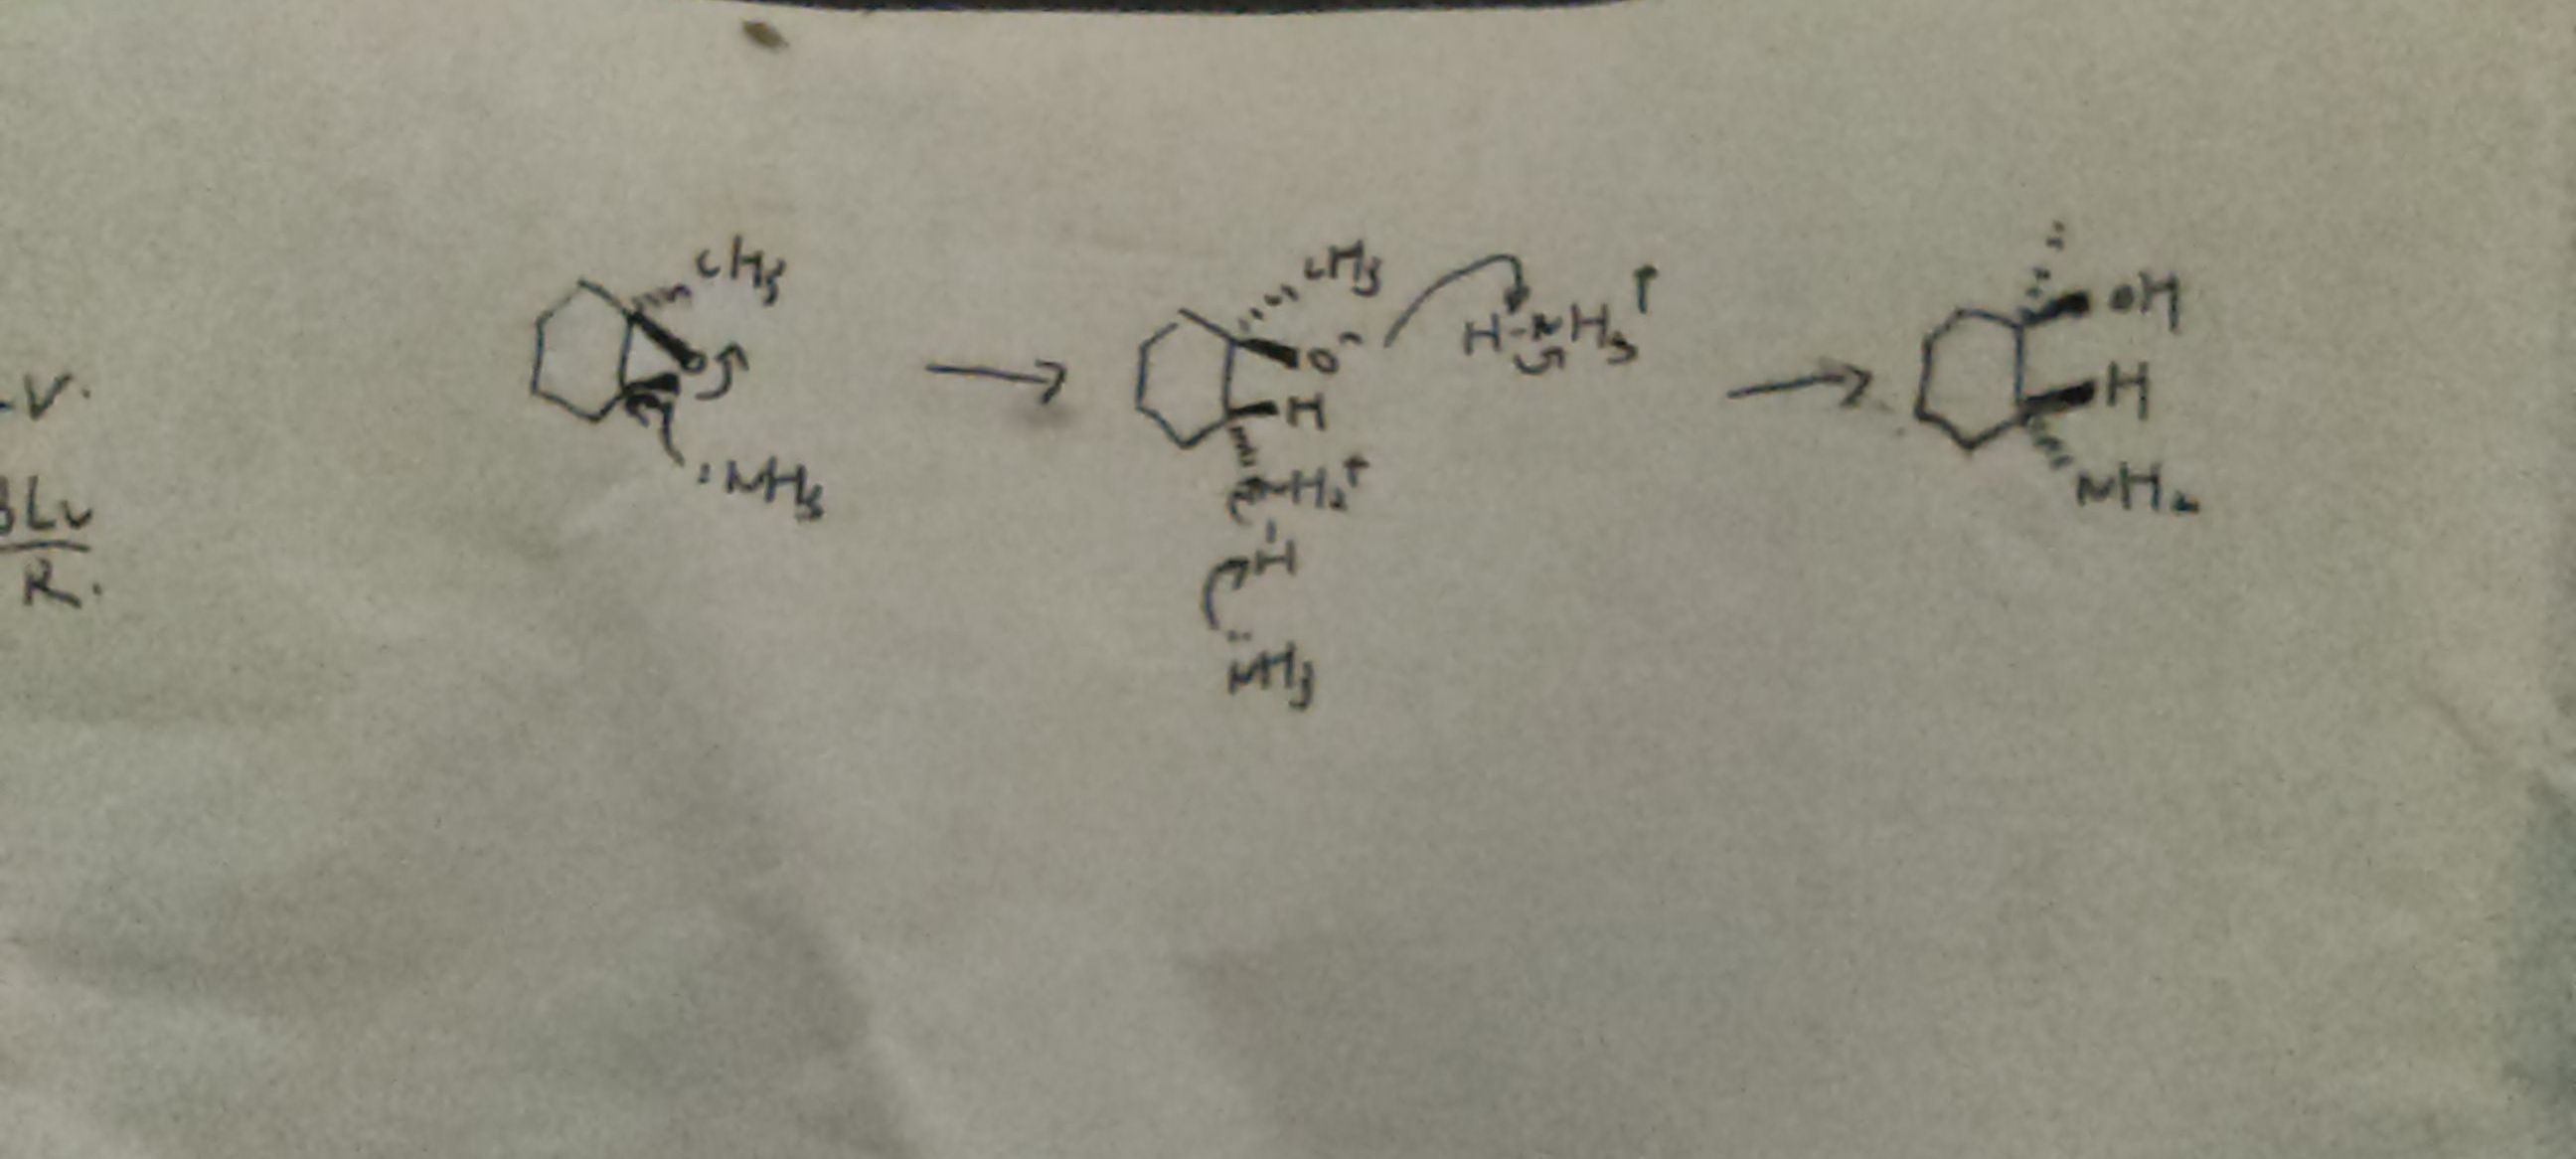 CH₃
O
:NH₃
CH₃
O⁻
H
NH₂⁺
H
:NH₃
H-NH₃⁺
OH
H
NH₂